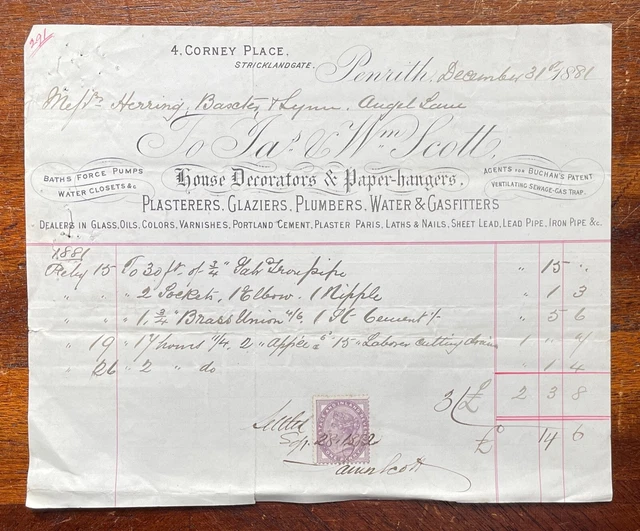 291
4. CORNEY PLACE,
STRICKLANDGATE,
Penrith, December 31st 1881
Messrs Herring, Baxter, & Lynn. Angel Lane
To Jas. & Wm. Scott,
BATHS FORCE PUMPS
WATER CLOSETS &c
House Decorators & Paper-hangers.
AGENTS FOR BUCHAN'S PATENT
VENTILATING SEWAGE-GAS TRAP.
PLASTERERS, GLAZIERS, PLUMBERS, WATER & GASFITTERS
DEALERS IN GLASS, OILS, COLORS, VARNISHES, PORTLAND CEMENT, PLASTER PARIS, LATHS & NAILS, SHEET LEAD, LEAD PIPE, IRON PIPE &c.
1881
15 To 30 ft. of 3/4 " Iron pipe " 15 "
" " " 2 Sockets, 1 Elbow. 1 Nipple " 1 3
" " " 1 3/4 " Brass Union Cement " 5 6
" 19 " 17 hours 2 " 15 " Laborer cutting drain 1
" 26 " 2 " do 1 4
3/ £ 2 3 8
£ 14 6
Settled
28 1882
Scott